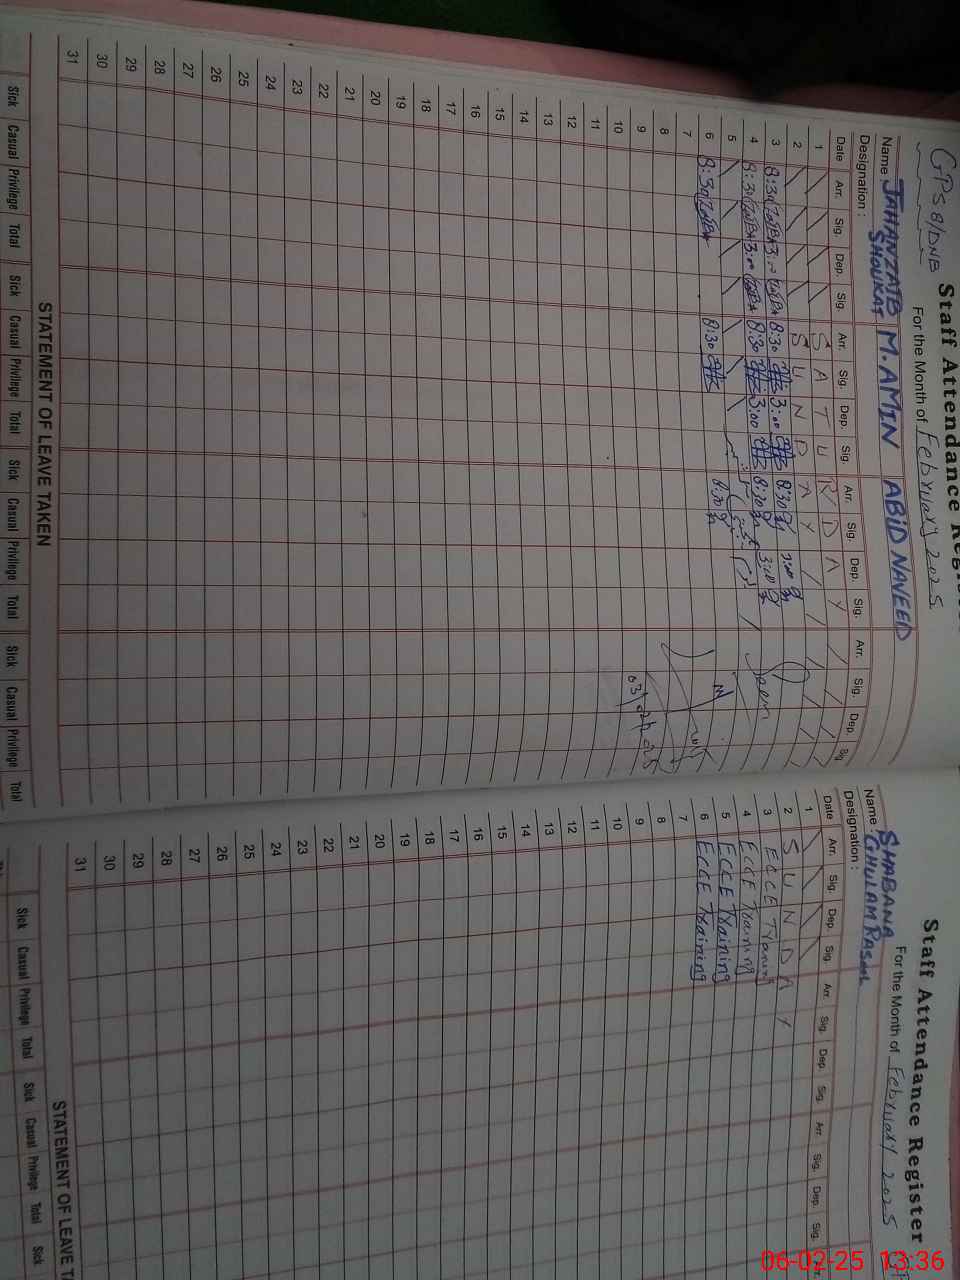 GPS 81/DNB
Staff Attendance Register
For the Month of February 2025
Name : JAHANZAIB SHOUKAT M. AMIN ABID NAVEED
Designation :
Date Arr. Sig. Dep. Sig. Arr. Sig. Dep. Sig. Arr. Sig. Dep. Sig. Arr. Sig. Dep. Sig.
1 S A T U R D A Y
2 S U N D A Y
3 8:30 3:00 8:30 3:00 8:30 3:00
4 8:30 3:00 8:30 3:00 8:30 3:00
5
6 8:30 8:30 8:30
7
8
9
10
11
12
13
14
15
16
17
18
19
20
21
22
23
24
25
26
27
28
29
30
31
STATEMENT OF LEAVE TAKEN
Sick Casual Privilege Total Sick Casual Privilege Total Sick Casual Privilege Total Sick Casual Privilege Total
Staff Attendance Register
For the Month of February 2025
Name : SHABANA GHULAM RASOOL
Designation :
Date Arr. Sig. Dep. Sig. Arr. Sig. Dep. Sig. Arr. Sig. Dep. Sig.
1
2 S U N D A Y
3 ECCE Training
4 ECCE Training
5 ECCE Training
6 ECCE Training
7
8
9
10
11
12
13
14
15
16
17
18
19
20
21
22
23
24
25
26
27
28
29
30
31
STATEMENT OF LEAVE T
Sick Casual Privilege Total Sick Casual Privilege Total Sick
06-02-25 13:36